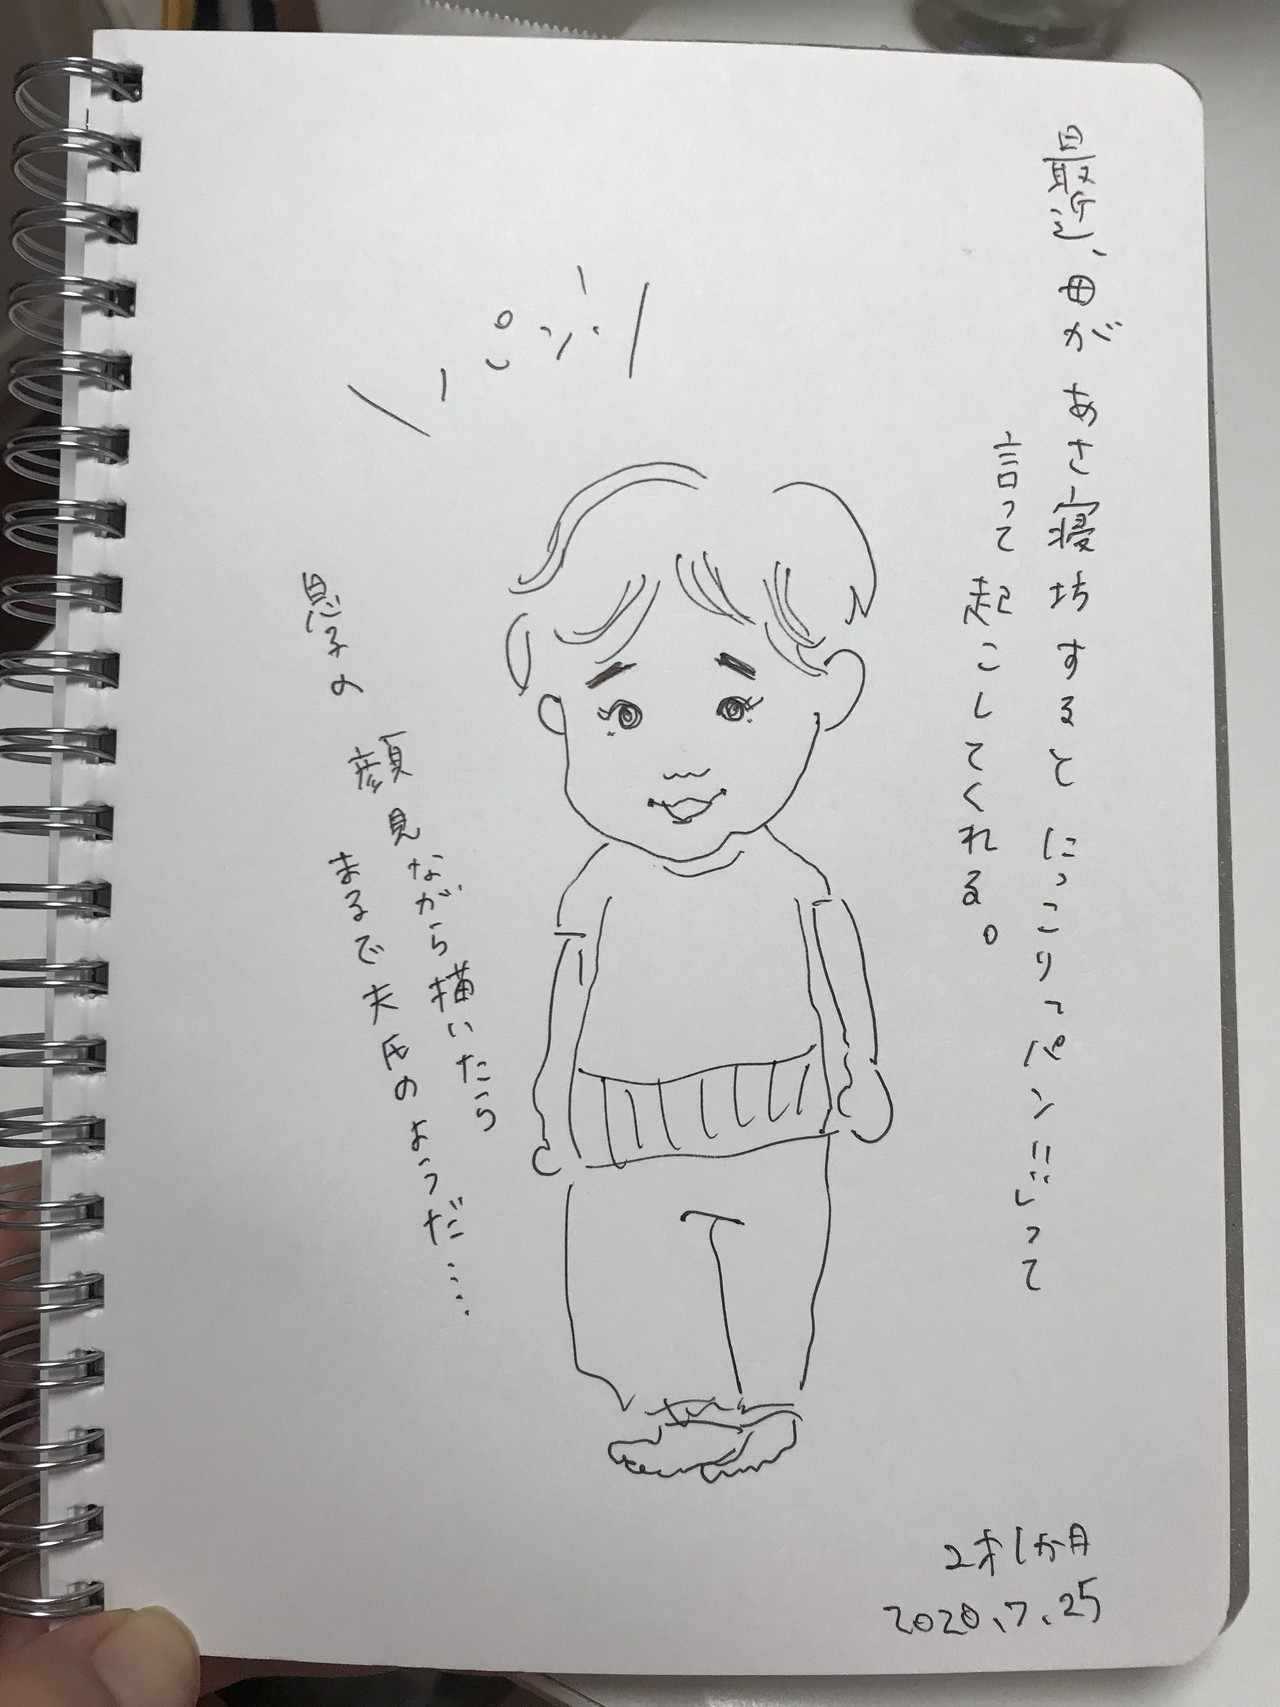 最近、母があさ寝坊するとにっこりってパン!!じって
言って起こしてくれる。
パン!
息子の
顔見ながら描いたら
まるで夫氏のようだ……
2才1か月
2020.7.25